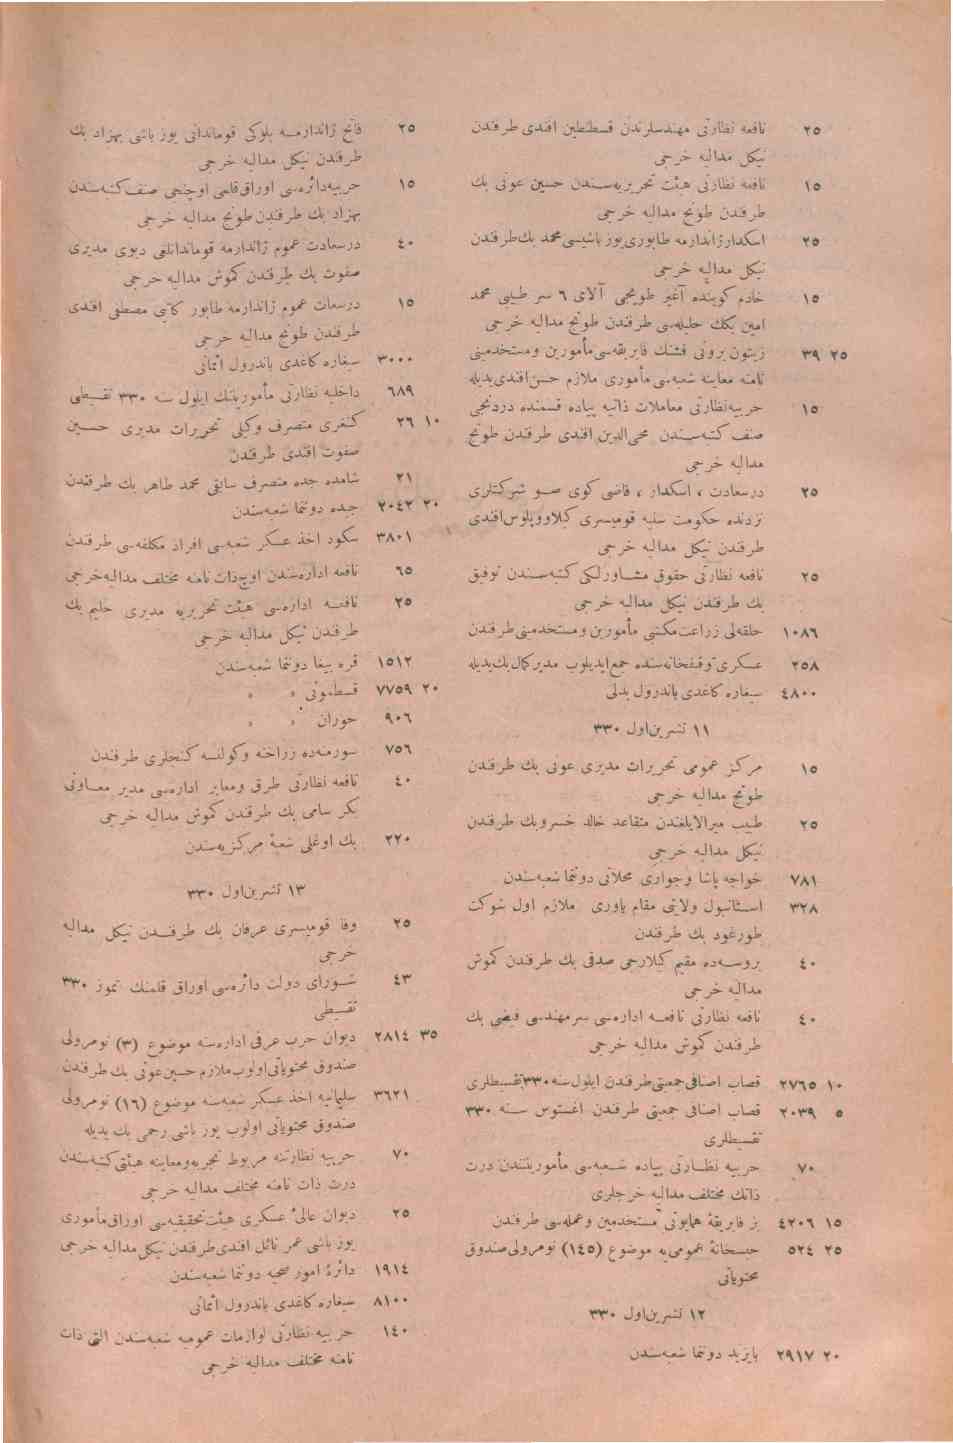 ٢٥ نافعه نظارتی مهندسلرندن قسطنطین افندی طرفندن
نیكل مدالیه خرجی
١٥ نافعه نظارتی هیئت تحریریه‌سندن حسین عونی بك
طرفندن طونج مدالیه خرجی
٢٥ اسكدار ژاندارمه طابوری یوز باشیسی محمد بك طرفندن
نیكل مدالیه خرجی
١٥ خادم كوینده آغیر طوپجی آلای ٦ سر طبیبی محمد
امین بكك حلیله‌سی طرفندن طونج مدالیه خرجی
٢٥ ٣٩ زیتون برونی فشنك فابریقه‌سی مأمورین ومستخدمینی
نامنه معاینه شعبه‌سی مأموری ملازم حسن افندی یدیله
١٥ حربیه نظارتی معاملات ذاتیه پیاده قسمنده دردنجی
صنف كتبه‌سندن محی‌الدین افندی طرفندن طونج
مدالیه خرجی
٢٥ درسعادت ، اسكدار ، قاضی كوی صو شركتلری
نزدنده حكومت سنیه قومیسری كیلاووپلوس افندی
طرفندن نیكل مدالیه خرجی
٢٥ نافعه نظارتی حقوق مشاورلكی كتبه‌سندن توفیق
بك طرفندن نیكل مدالیه خرجی
١٠٨٦ حلقه‌لی زراعت مكتبی مأمورین ومستخدمینی طرفندن
٢٥٨ عسكری توقیفخانه‌سنده جمع ایدیلوب مدیر كمال بك یدیله
٤٨٠٠ سیغاره كاغدی باندرول بدلی
١١ تشرین اول ٣٣٠
١٥ مركز عمومی تحریرات مدیری عونی بك طرفندن
طونج مدالیه خرجی
٢٥ طبیب میرالایلغندن متقاعد خالد خسرو بك طرفندن
نیكل مدالیه خرجی
٧٨١ خواجه پاشا وجواری محلاتی دوننما شعبه‌سندن
٣٢٨ استانبول ولایتی مقام یاوری ملازم اول شوكت
طورغود بك طرفندن
٤٠ بروسه‌ده مقیم كیلارجی صدقی بك طرفندن كموش
مدالیه خرجی
٤٠ نافعه نظارتی نافعه اداره‌سی سر مهندسی فیضی بك
طرفندن كموش مدالیه خرجی
١٠ ٢٧٦٥ قصاب اصنافی جمعیتی طرفندن ایلول سنه ٣٣٠ تقسیطلری
٥ ٢٠٣٩ قصاب اصنافی جمعیتی طرفندن اغستوس سنه ٣٣٠
تقسیطلری
٧٠ حربیه نظارتی پیاده شعبه‌سی مأموریتندن درت
ذاتك مختلف مدالیه خرجلری
١٥ ٤٢٠٦ بز فابریقهٔ همایونی مستخدمین وعمله‌سی طرفندن
٢٥ ٥٢٤ حبسخانهٔ عمومی‌یه موضوع (١٤٥) نومرولی صندوق
محتویاتی
١٢ تشرین اول ٣٣٠
٢٠ ٢٩١٧ بایزید دوننما شعبه‌سندن
٢٥ فاتح ژاندارمه بلوكی قوماندانی یوز باشی بهزاد بك
طرفندن نیكل مدالیه خرجی
١٥ حربیه دائره‌سی اوراق قلمی اوچنجی صنف كتبه‌سندن
بهزاد بك طرفندن طونج مدالیه خرجی
٤٠ درسعادت عموم ژاندارمه قوماندانلغی دیوی مدیری
صفوت بك طرفندن كموش مدالیه خرجی
١٥ درسعات عموم ژاندارمه طابور كاتبی مصطفی افندی
طرفندن طونج مدالیه خرجی
٣٠٠٠ سیغاره كاغدی باندرول اثمانی
٦٨٩ داخلیه نظارتی مأموریتنك ایلول سنه ٣٣٠ تقسیطی
١٠ ٢٦ كنغری متصرف وكیلی تحریرات مدیری حسین
صفوت افندی طرفندن
٢١ شامده جده متصرف سابقی محمد طاهر بك طرفندن
٢٠ ٢٠٤٢ جده دوننما شعبه‌سندن
٣٨٠١ سكود اخذ عسكر شعبه‌سی افراد مكلفه‌سی طرفندن
٦٥ نافعه اداره‌سندن اوچ ذات نامنه مختلف مدالیه خرجی
٢٥ نافعه اداره‌سی هیئت تحریریه مدیری حلیم بك
طرفندن نیكل مدالیه خرجی
١٥١٢ قره بیغا دوننما شعبه‌سندن
٢٠ ٧٧٥٩ قسطمونی » »
٩٠٦ حوران » »
٧٥٦ سورمنه‌ده زراخنه وكولنسه كنجلری طرفندن
٤٠ نافعه نظارتی طرق ومعابر اداره‌سی مدیر معاونی
بكر سامی بك طرفندن كموش مدالیه خرجی
٢٢٠ بك اوغلی شعبهٔ مركزیه‌سندن
١٣ تشرین اول ٣٣٠
٢٥ وفا قومیسری عرفان بك طرفندن نیكل مدالیه
خرجی
٤٣ شورای دولت دائره‌سی اوراق قلمنك تموز ٣٣٠
تقسیطی
٣٥ ٢٨١٤ دیوان حرب عرفی اداره‌سنه موضوع (٣) نومرولی
صندوق محتویاتی اولوب ملازم حسین عونی بك طرفندن
٣٦٢١ سلیمانیه اخذ عسكر شعبه‌سنه موضوع (١٦) نومرولی
صندوق محتویاتی اولوب یوز باشی رحمی بك یدیله
٧٠ حربیه نظارتنه مربوط تجربه ومعاینه هیئتی كتبه‌سندن
درت ذات نامنه مختلف مدالیه خرجی
٢٥ دیوان عالیٔ عسكری هیئت تحقیقیه‌سی اوراق مأموری
یوز باشی عمر نائل افندی طرفندن نیكل مدالیه خرجی
١٩١٤ دائرهٔ امور صحیه دوننما شعبه‌سندن
٨١٠٠ سیغاره كاغدی باندرول اثمانی
١٤٠ حربیه نظارتی لوازمات عمومیه شعبه‌سندن التی ذات
نامنه مختلف مدالیه خرجی